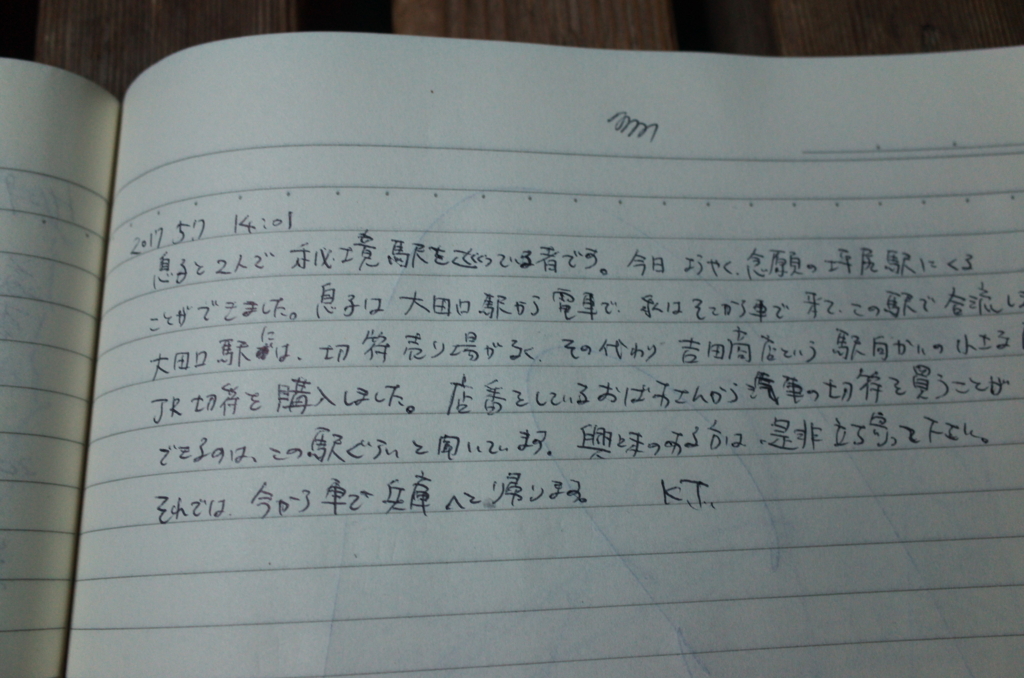 2017 5.7 14:01
息子と2人で秘境駅を巡っている者です。今日ようやく、念願の坪尻駅にくる
ことができました。息子は大田口駅から電車で、私はそこから車で来て、この駅で合流し
大田口駅には、切符売り場がなく、その代わり吉田商店という駅向かいの小さな
JR切符を購入しました。店番をしているおばあさんから汽車の切符を買うことが
できるのは、この駅ぐらいと聞いています。興味のある方は、是非立ち寄って下さい。
それでは、今から車で兵庫へと帰ります。 K.T.